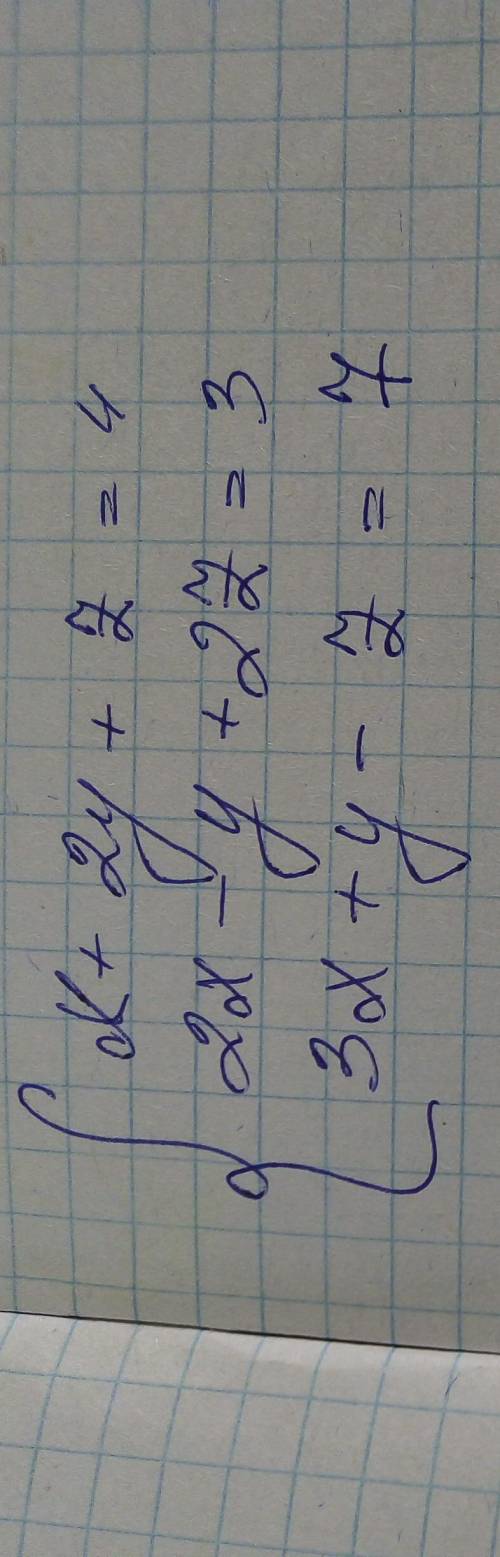 x + 2y + z = 4
2x - y + 2z = 3
3x + y - z = 7